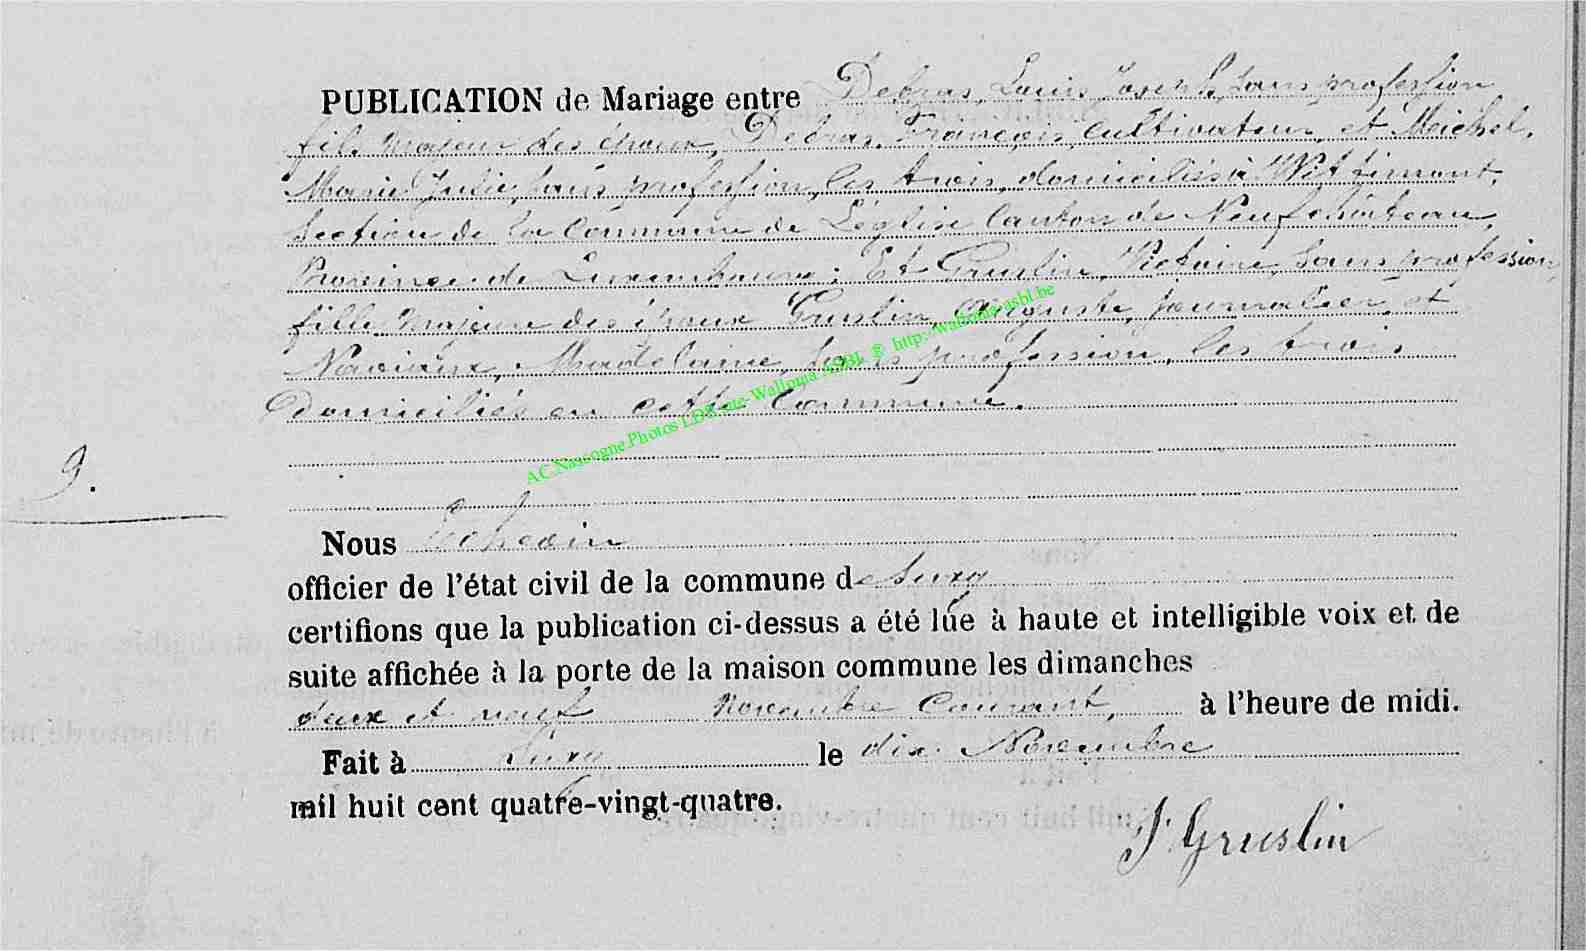 PUBLICATION de Mariage entre Debras, Louis Joseph, sans profession
fils majeur des époux, Debras, François, cultivateur, et Michel,
Marie Julie, sans profession, les trois domiciliés à Wittimont,
section de la Commune de Léglise Canton de Neufchâteau,
Province de Luxembourg; Et Gruslin, Victoire, sans profession,
fille majeure des époux Gruslin, Auguste, journalier, et
Madelaine, sans profession, les trois
domiciliés en cette Commune.
AC.Nassogne.Photos LDR ate-Wallonia ASBL ® http:-wallonia-asbl.be
9.
Nous Echevin
officier de l'état civil de la commune de Suxy
certifions que la publication ci-dessus a été lue à haute et intelligible voix et de
suite affichée à la porte de la maison commune les dimanches
deux et neuf novembre Courant, à l'heure de midi.
Fait à Suxy le dix Novembre
mil huit cent quatre-vingt-quatre.
J Gruslin